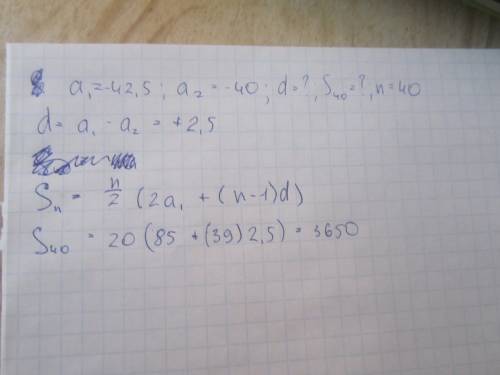 a₁=-42,5; a₂=-40; d=?, S₄₀=?, n=40
d= a₁ - a₂ = +2,5
Sₙ = n/2 (2a₁ + (n-1)d)
S₄₀ = 20(85 + (39)2,5) = 3650